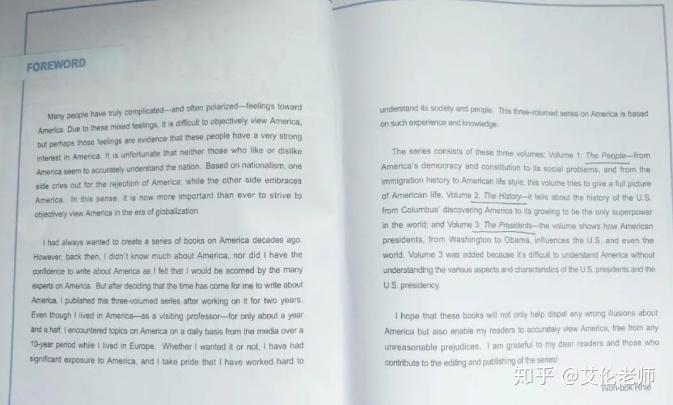 FOREWORD
Many people have truly complicated—and often polarized—feelings toward
America. Due to these mixed feelings, it is difficult to objectively view America,
but perhaps those feelings are evidence that these people have a very strong
interest in America. It is unfortunate that neither those who like or dislike
America seem to accurately understand the nation. Based on nationalism, one
side cries out for the rejection of America; while the other side embraces
America. In this sense, it is now more important than ever to strive to
objectively view America in the era of globalization.
I had always wanted to create a series of books on America decades ago.
However, back then, I didn't know much about America, nor did I have the
confidence to write about America as I felt that I would be scorned by the many
experts on America. But after deciding that the time has come for me to write about
America, I published this three-volumed series after working on it for two years.
Even though I lived in America—as a visiting professor—for only about a year
and a half, I encountered topics on America on a daily basis from the media over a
10-year period while I lived in Europe. Whether I wanted it or not, I have had
significant exposure to America, and I take pride that I have worked hard to
understand its society and people. This three-volumed series on America is based
on such experience and knowledge.
The series consists of these three volumes: Volume 1: The People—from
America's democracy and constitution to its social problems, and from the
immigration history to American life style, this volume tries to give a full picture
of American life; Volume 2. The History—it tells about the history of the U.S.
from Columbus' discovering America to its growing to be the only superpower
in the world; and Volume 3: The Presidents—the volume shows how American
presidents, from Washington to Obama, influences the U.S. and even the
world. Volume 3 was added because it's difficult to understand America without
understanding the various aspects and characteristics of the U.S. presidents and the
U.S. presidency.
I hope that these books will not only help dispel any wrong illusions about
America but also enable my readers to accurately view America, free from any
unreasonable prejudices. I am grateful to my dear readers and those who
contribute to the editing and publishing of the series!
Won-bok Rhie
知乎 @艾伦老师